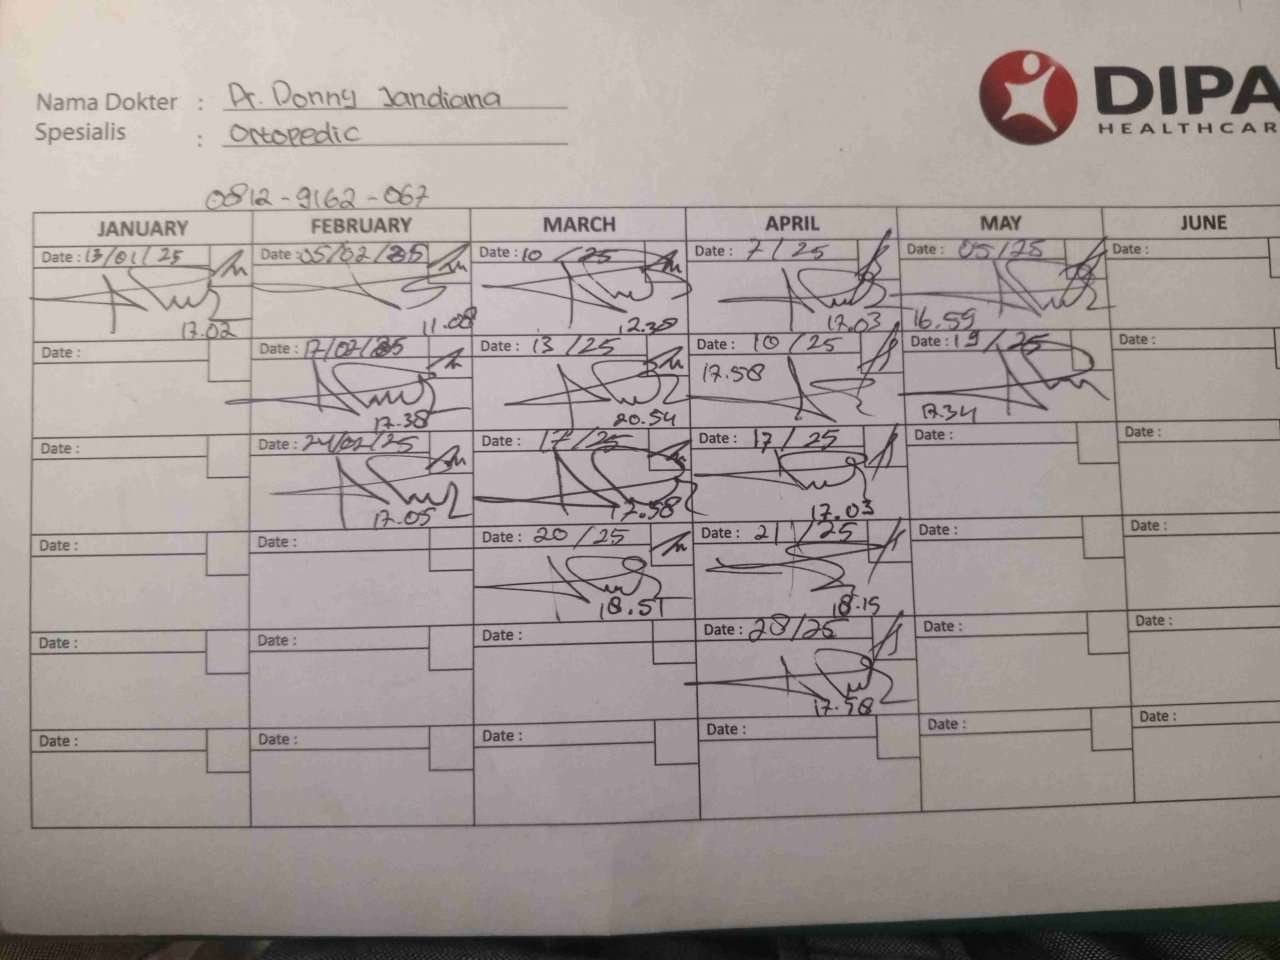 Nama Dokter : Dr. Donny Jandiana
DIPA
HEALTHCAR
Spesialis : Ortopedic
0812-9162-067
JANUARY FEBRUARY MARCH APRIL MAY JUNE
Date : 13/01/25 Date : 05/02/25 Date : 10 /25 Date : 7/25 Date : 05/25 Date :
17.02 11.08 12.38 17.03 16.59
Date : Date : 17/02/25 Date : 13 /25 Date : 10 /25 Date : 19/25 Date :
17.38 20.54 17.58 17.34
Date : Date : 24/02/25 Date : 17/25 Date : 17/25 Date : Date :
17.05 17.58 17.03
Date : Date : Date : 20/25 Date : 21/25 Date : Date :
18.51 18.15
Date : Date : Date : Date : 28/25 Date : Date :
17.58
Date : Date : Date : Date : Date : Date :